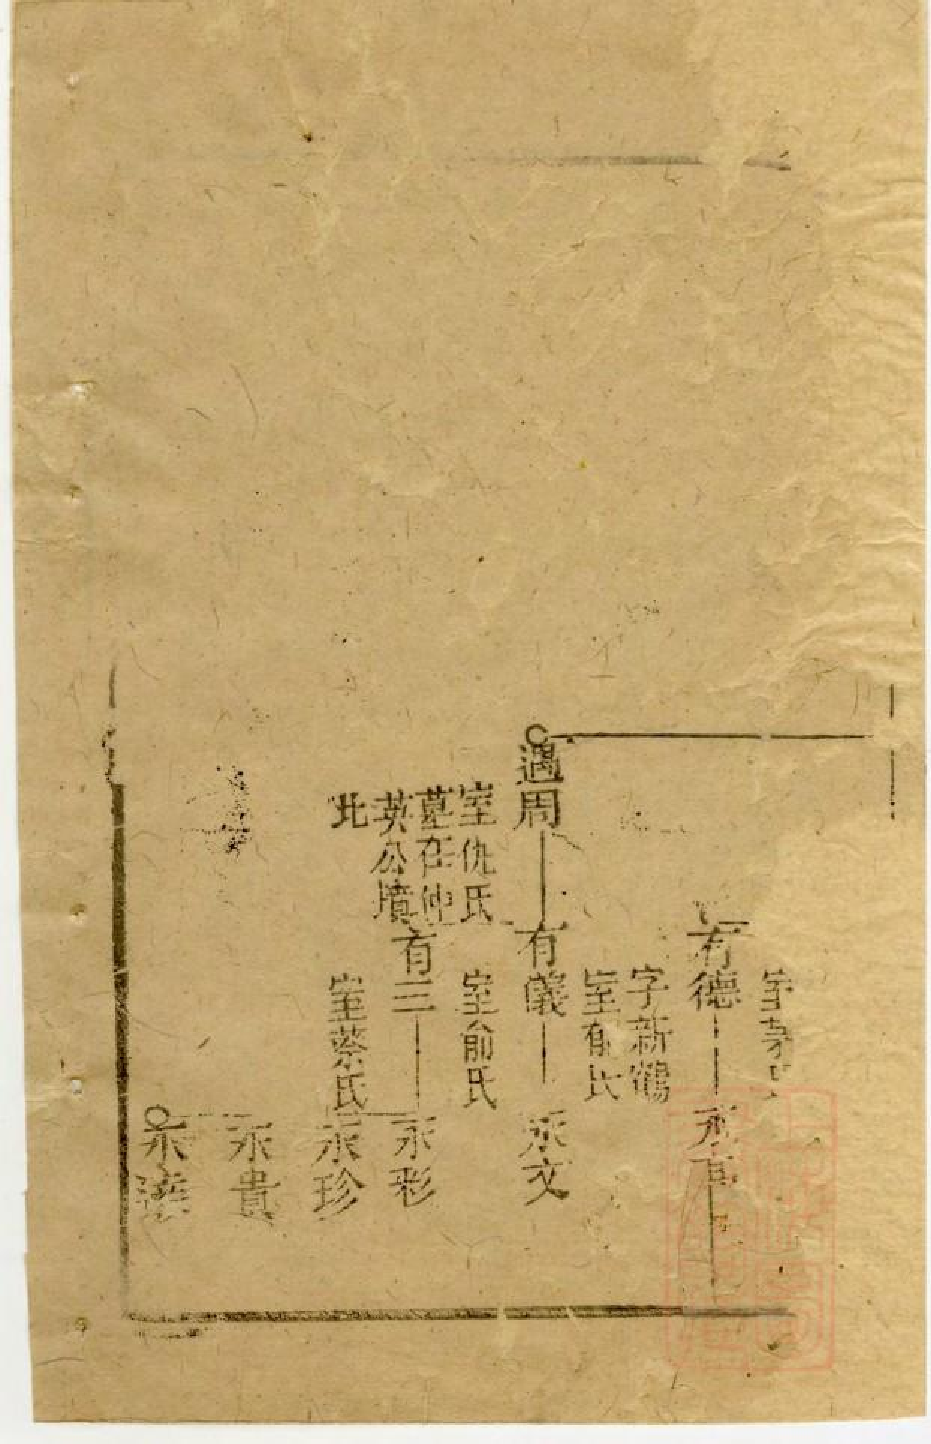 有德
字新鶴
室郁氏
遇周
室仇氏
墓在仲
英公墳
北
有儀
室俞氏
永文
有三
室蔡氏
永彩
永珍
永貴
永